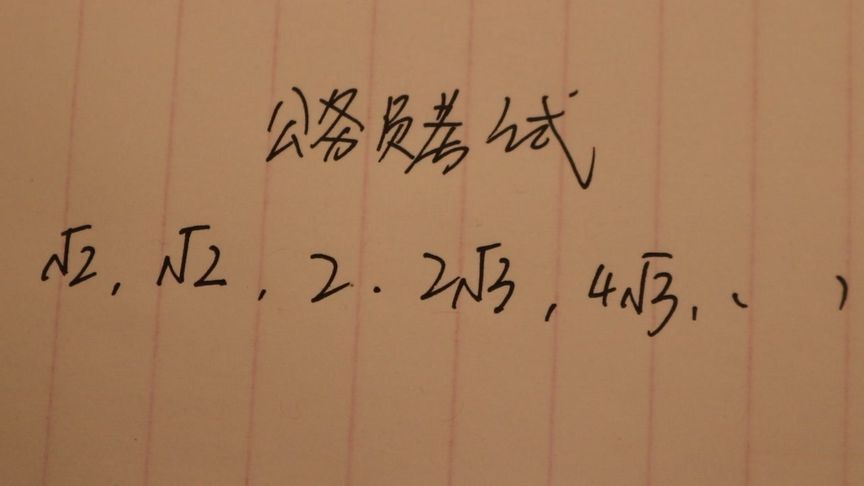 公务员考试
√2, √2, 2. 2√3, 4√3, ( )